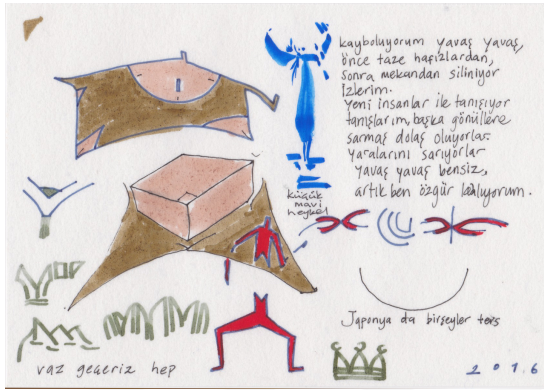 kayboluyorum yavaş yavaş,
önce taze hafızlardan,
sonra mekandan siliniyor
izlerim.
yeni insanlar ile tanışıyor
tanışlarım, başka gönüllere
sarmaş dolaş oluyorlar.
yaralarını sarıyorlar
yavaş yavaş bensiz,
artık ben özgür kalıyorum.
küçük
mavi
heykel
Japonya da birşeyler ters
vaz geçeriz hep
2016